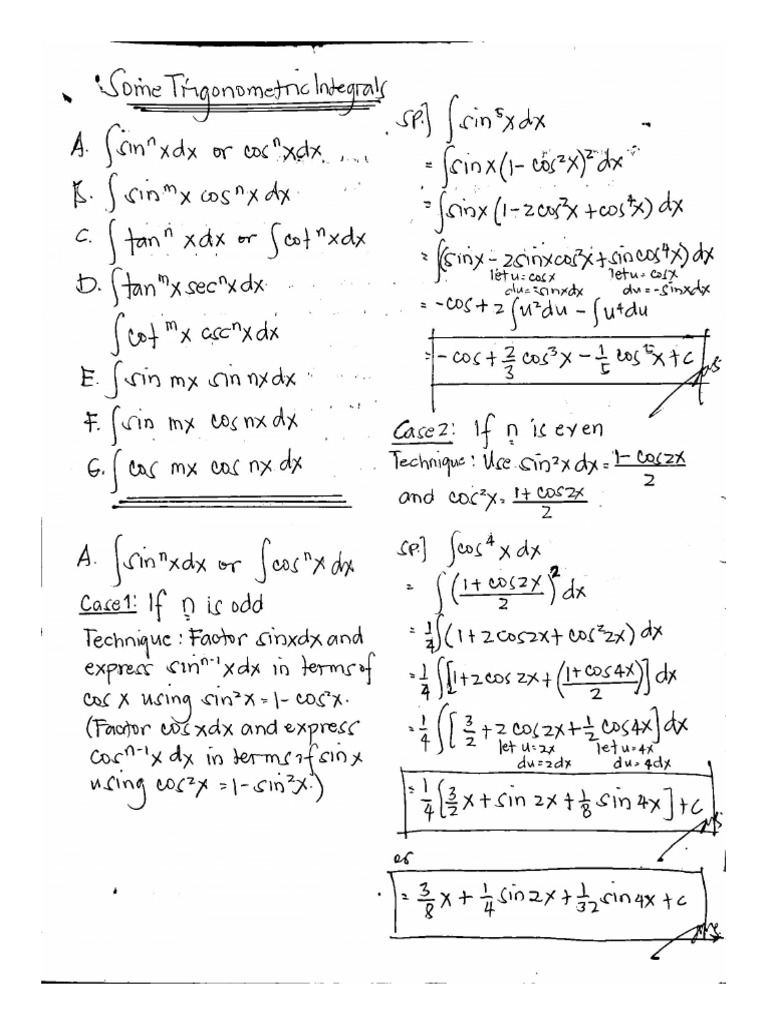 Some Trigonometric Integrals
A. ∫sinⁿxdx or cosⁿxdx
B. ∫sinᵐx cosⁿx dx
C. ∫tanⁿ xdx or ∫cotⁿxdx
D. ∫tanᵐx secⁿxdx
∫cotᵐx cscⁿxdx
E. ∫sin mx sin nxdx
F. ∫sin mx cos nx dx
G. ∫cos mx cos nx dx
A. ∫sinⁿxdx or ∫cosⁿx dx
Case1: If n is odd
Technique: Factor sinxdx and
express sinⁿ⁻¹xdx in terms of
cos x using sin²x=1-cos²x.
(Factor cosxdx and express
cosⁿ⁻¹x dx in terms of sinx
using cos²x=1-sin²x.)
sp.] ∫sin⁵xdx
=∫sinx(1-cos²x)²dx
=∫sinx(1-2cos²x+cos⁴x)dx
=∫(sinx-2sinxcos²x+sincos⁴x)dx
let u=cosx let u=cosx
du=-sinxdx du=-sinxdx
=-cos+2∫u²du-∫u⁴du
=-cos+2/3 cos³x-1/5 cos⁵x+c
Case2: If n is even
Technique: Use sin²xdx=(1-cos2x)/2
and cos²x=(1+cos2x)/2
sp.] ∫cos⁴xdx
=∫((1+cos2x)/2)²dx
=1/4∫(1+2cos2x+cos²2x)dx
=1/4∫[1+2cos2x+((1+cos4x)/2)]dx
=1/4∫[3/2+2cos2x+1/2cos4x]dx
let u=2x let u=4x
du=2dx du=4dx
=1/4[3/2x+sin2x+1/8sin4x]+c
or
=3/8x+1/4sin2x+1/32sin4x+c